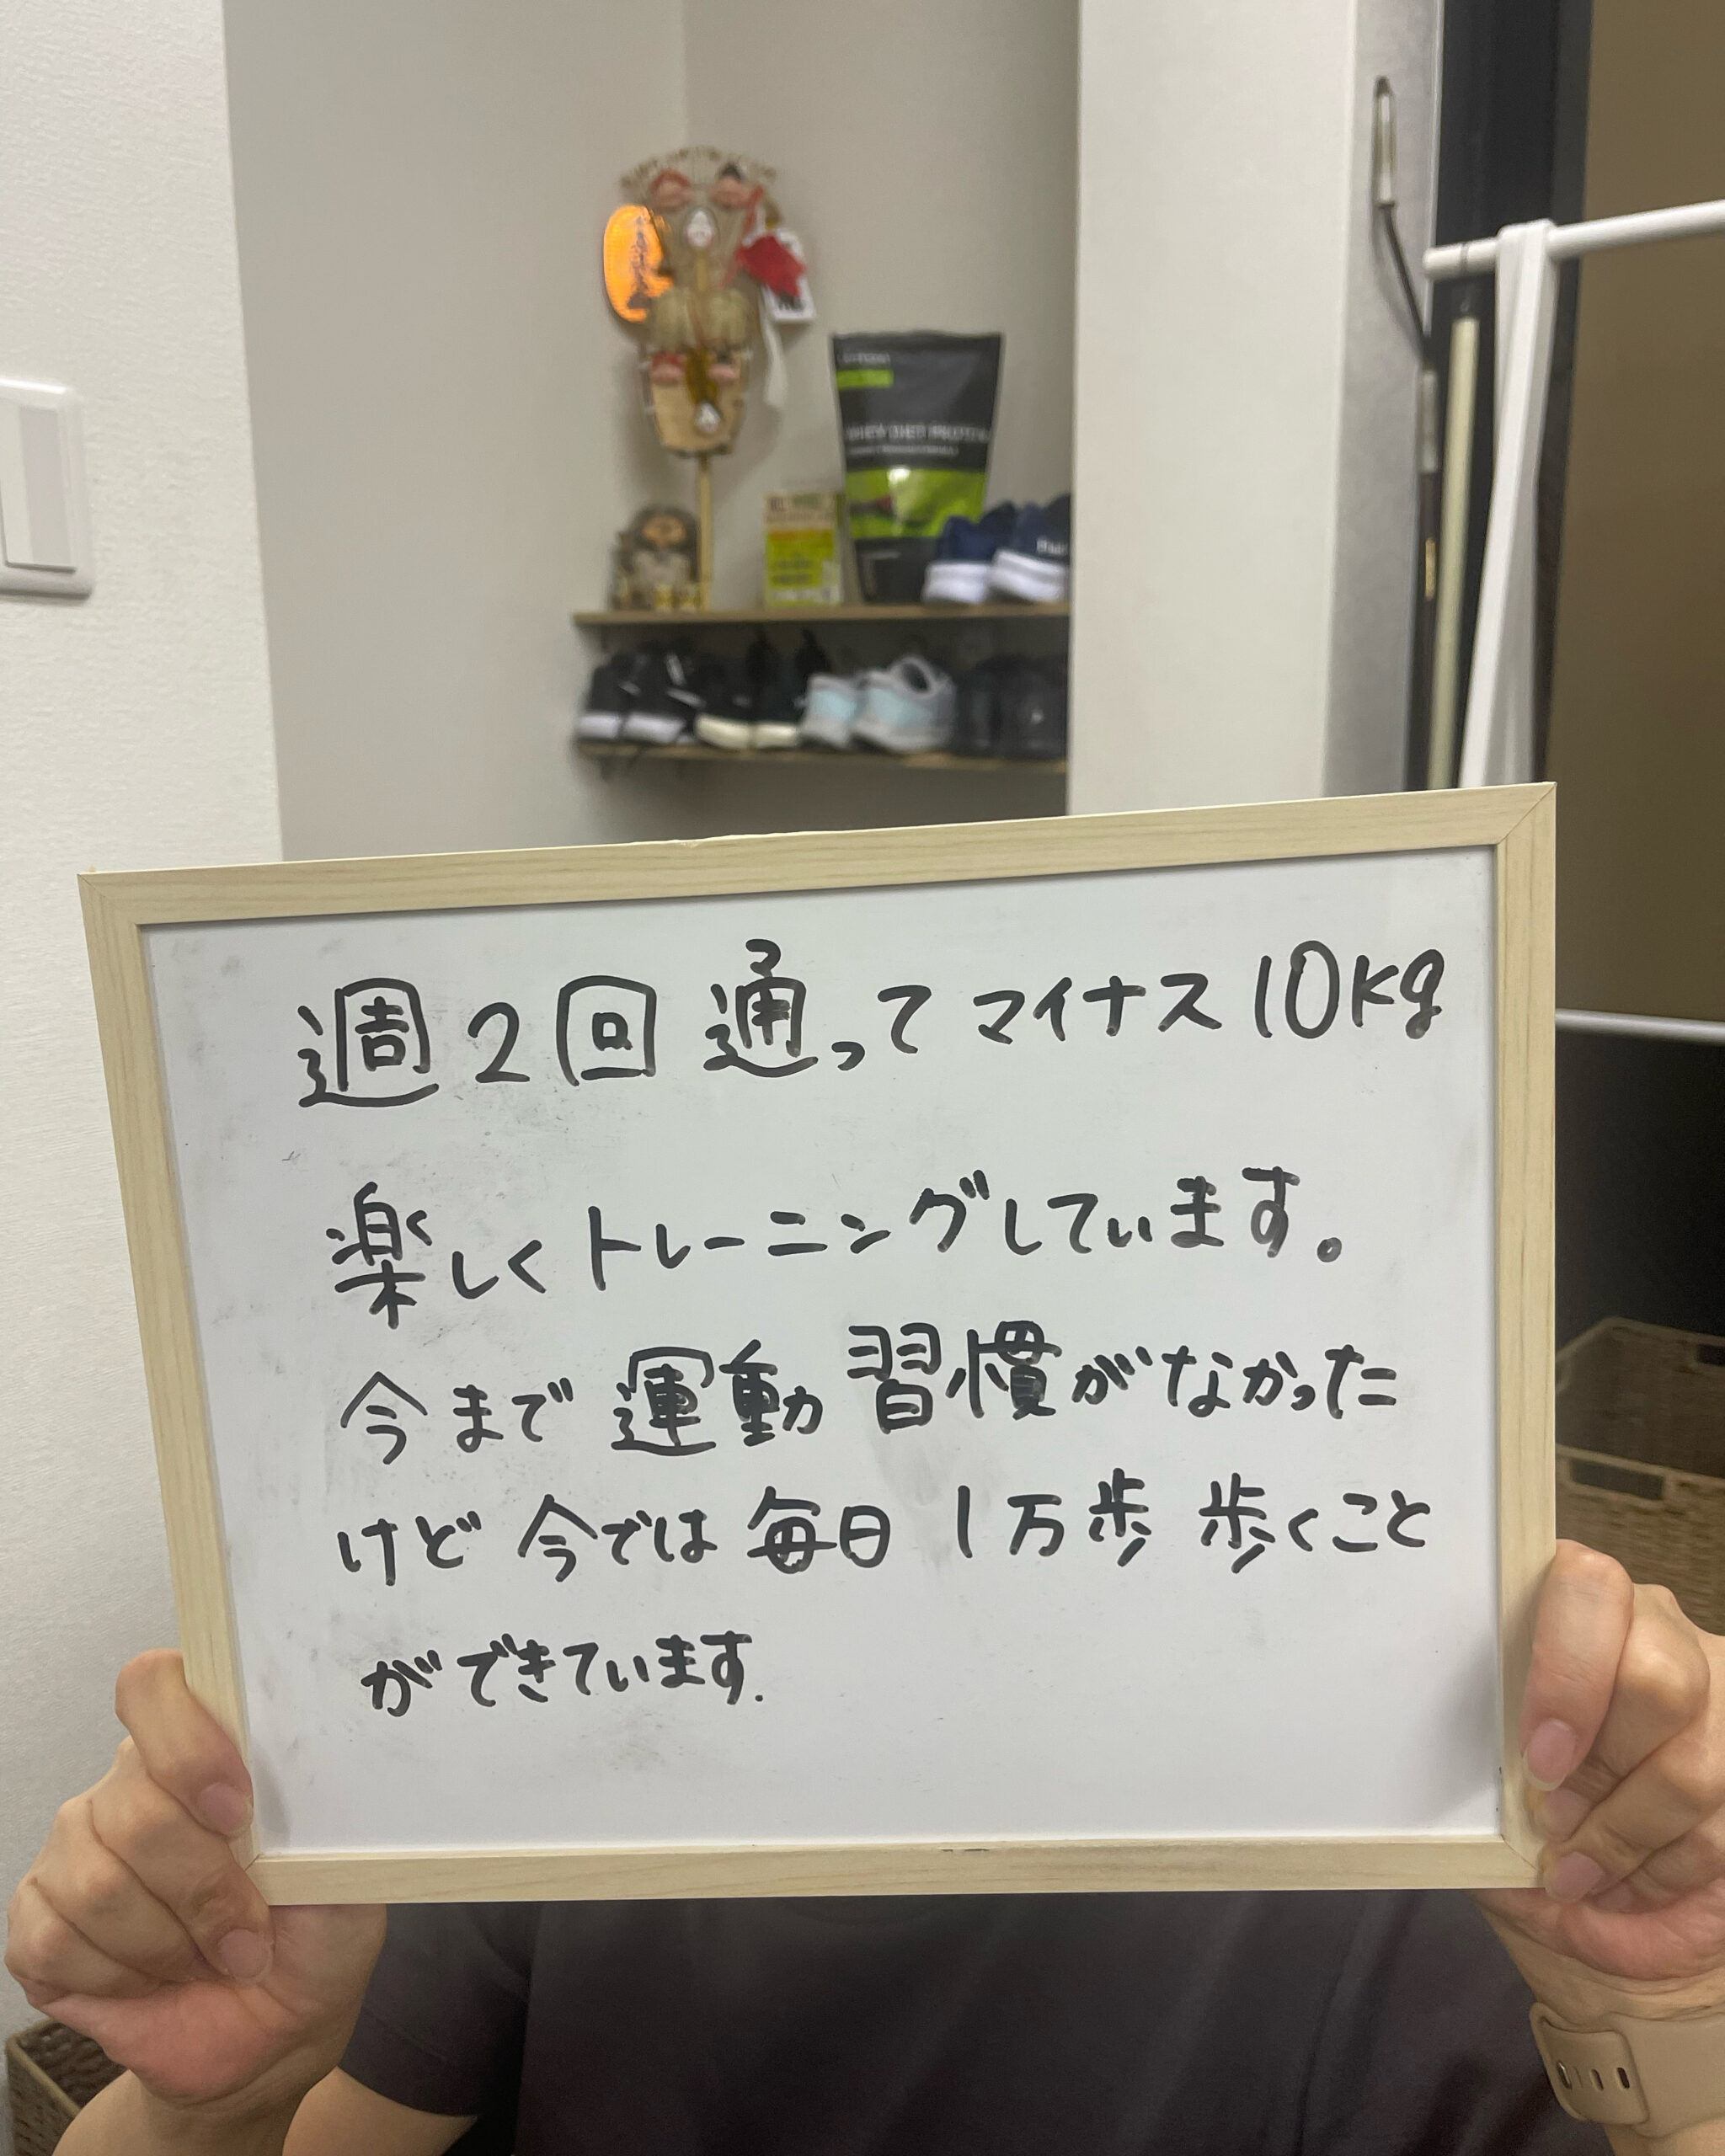 WHEY DIET PROTEIN
週2回 通って マイナス 10kg
楽しくトレーニングしています。
今まで 運動 習慣がなかった
けど 今では 毎日 1万歩 歩くこと
ができています.